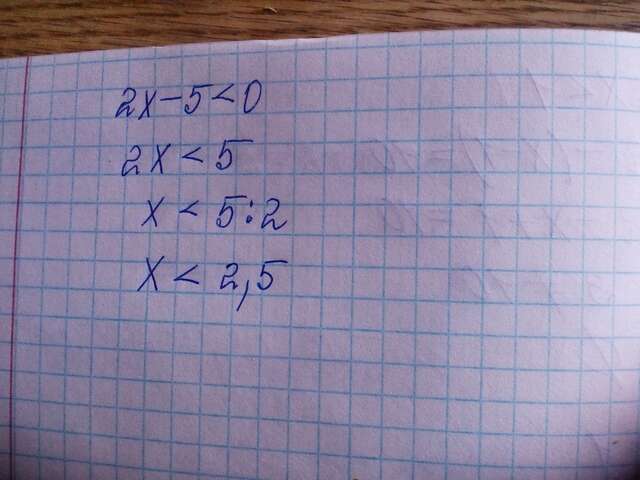 2x-5<0
2x<5
x<5:2
x<2,5